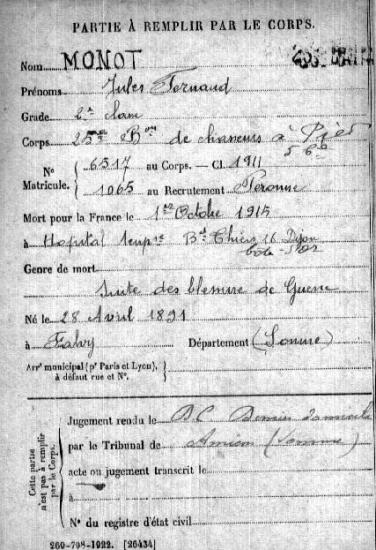 PARTIE À REMPLIR PAR LE CORPS.
Nom MONOT
Prénoms Jules Fernand
Grade 2e Classe
Corps 25me Bon de chasseurs à Pied
5 Cie
No Matricule. 6517 au Corps. — Cl. 1911
1065 au Recrutement Peronne
Mort pour la France le 1er Octobre 1915
à Hopital temp re Bd Thiers 16 Dijon
Côte-d'Or
Genre de mort
Suite des blessure de Guerre
Né le 28 Avril 1891
à Falvy Département (Somme)
Arrt municipal (pr Paris et Lyon), à défaut rue et No.
Cette partie n'est pas à remplir par le Corps.
Jugement rendu le
par le Tribunal de Amiens (Somme)
acte ou jugement transcrit le
à
No du registre d'état civil
269-708-1922. [26434]